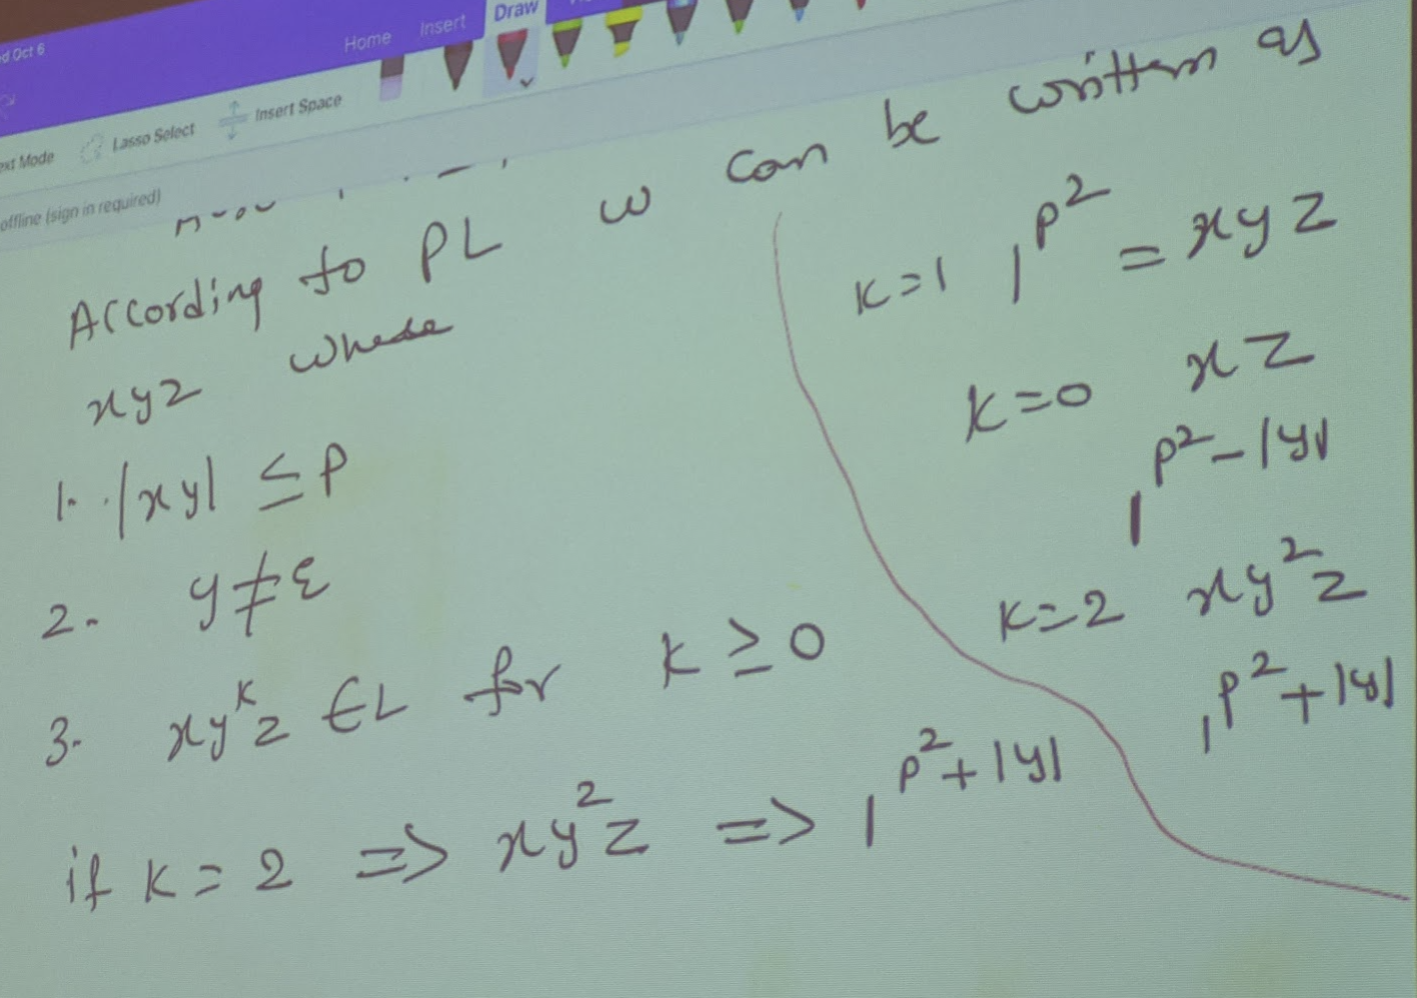 d Oct 6
Home Insert Draw
ext Mode Lasso Select Insert Space
offline (sign in required)
According to PL w can be written as
xyz where
1. |xy| ≤ P
2. y ≠ ε
3. xy^k z ∈ L for k ≥ 0
if k = 2 => xy^2 z => 1^{p^2+|y|}
k=1 1^{p^2} = xyz
k=0 xz
1^{p^2-|y|}
k=2 xy^2 z
1^{p^2+|y|}